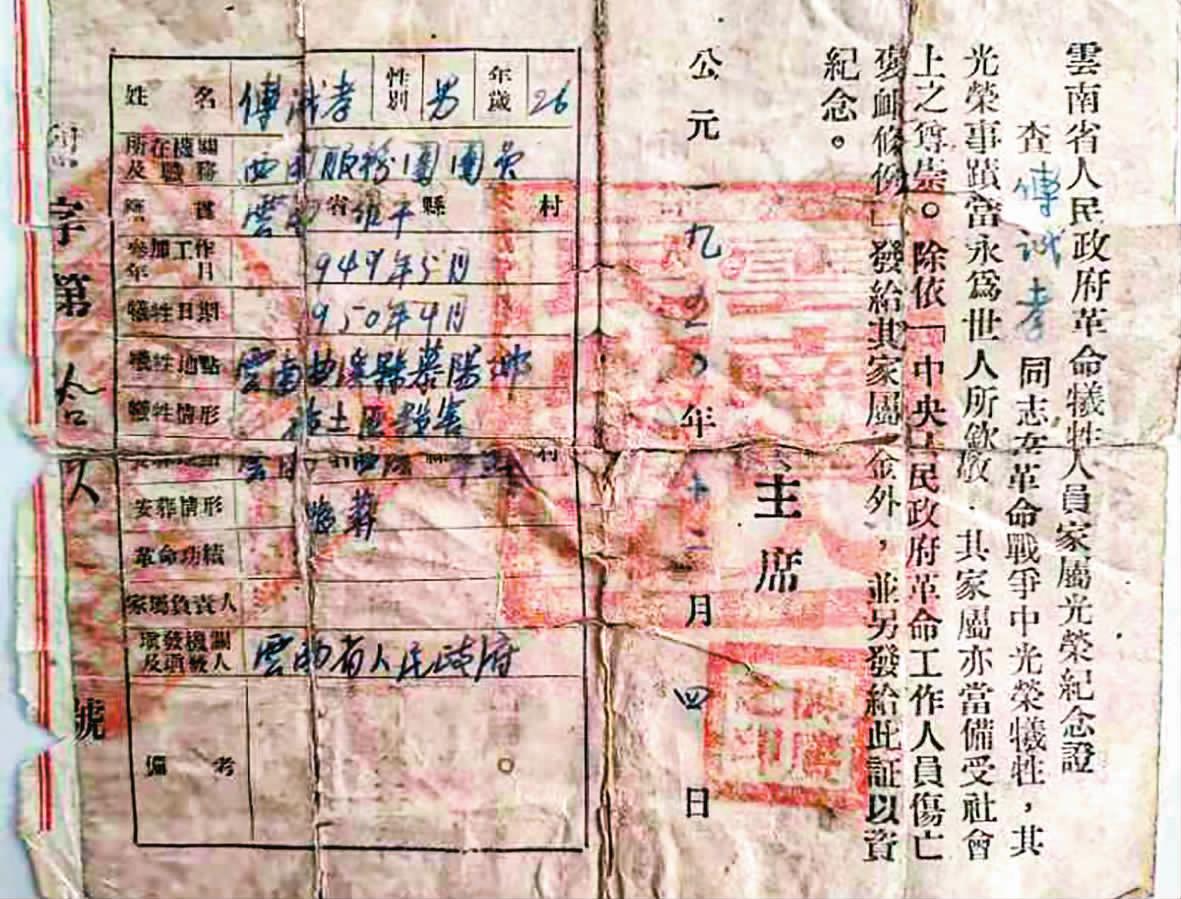 雲南省人民政府革命犧牲人員家屬光榮紀念證
查傅誠孝同志在革命戰爭中光榮犧牲，其
光榮事蹟當永爲世人所欽敬．其家屬亦當備受社會
上之尊崇。除依「中央人民政府革命工作人員傷亡
褒卹條例」發給其家屬 金外，並另發給此証以資
紀念。
主席
公元一九五〇年十二月四日
姓名 傅誠孝 性別 男 年歲 26
所在機關及職務 西南服務團團員
籍貫 雲南省 縣 村
參加工作年月日 949年5月
犧牲日期 950年4月
犧牲地點 雲南曲溪縣
犧牲情形
村
安葬情形
革命功績
家屬負責人
填發機關及填發人 雲南省人民政府
備考
字第 號
之印